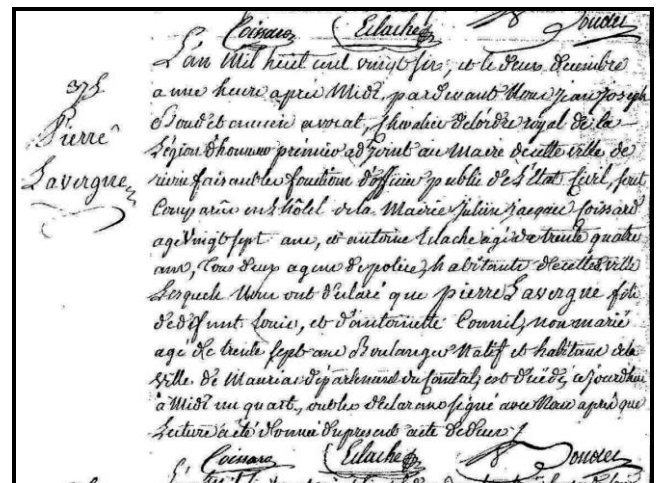 Coissard Eclache Boudet
L'an Mil huit cent vingt six, et le deux decembre
a une heure après Midi, pardevant Nous jean joseph
Boudet ancien avocat, Chevalier de lordre royal de la
Légion d'honneur premier adjoint au Maire de cette ville de
riom faisant les fonctions d'officier public de l'état Civil, sont
Comparus en l'hôtel de la Mairie julien jacques Coissard
agé vingt sept ans, et antoine Eclache agé de trente quatre
ans, tous deux agens de police, habitants de cette ville
Lesquels Nous ont déclaré que pierre Lavergne fils
de défunt Louis, et d'antoinette Connil, non marié
agé de trente sept ans Boulanger Natif et habitant de la
Ville de Mauriac département du Cantal, est décédé, cejourdhui
à Midi un quart, et les déclarans signé avec Nous après que
Lecture a été donnée du present acte de décès
375
Pierre
Lavergne
Coissard Eclache Boudet